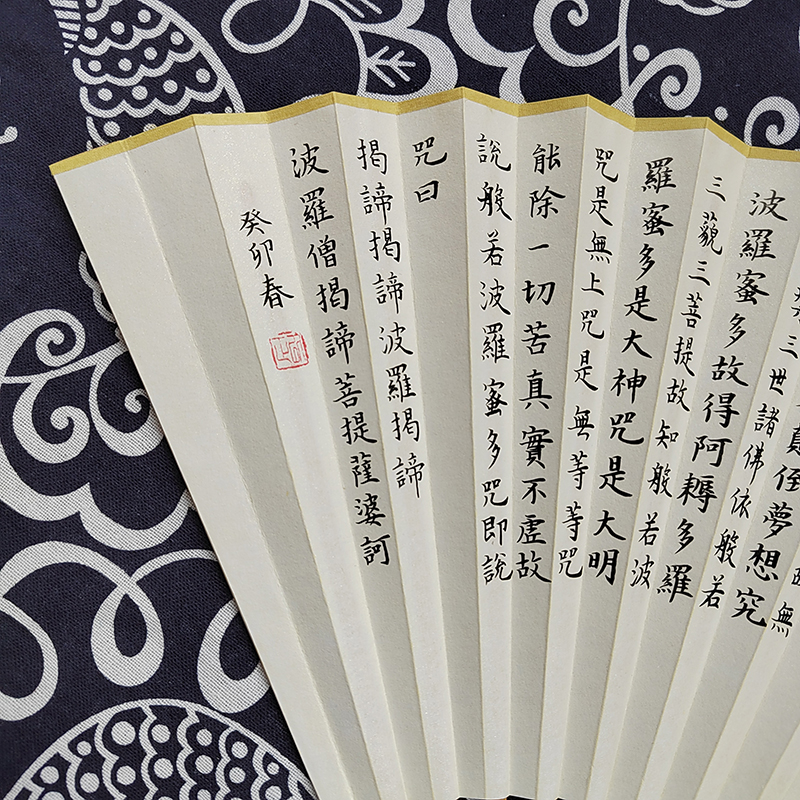 無
顛倒夢想究
三世諸佛依般若
波羅蜜多故得阿耨多羅
三藐三菩提故知般若波
羅蜜多是大神咒是大明
咒是無上咒是無等等咒
能除一切苦真實不虛故
說般若波羅蜜多咒即說
咒曰
揭諦揭諦波羅揭諦
波羅僧揭諦菩提薩婆訶
癸卯春